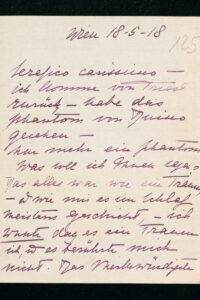 Wien 18-5-18
125
Serafico carissimo –
ich komme von Triest
zurück – habe das
phantom von Duino
gesehen –
nur mehr ein phantom
Was soll ich Ihnen sagen
Das alles war wie ein Traum
– u wie mir es im Schlaf
meistens geschieht – ich
wusste dass es ein Traum
ist u es berührte mich
nicht. Das Merkwürdigste